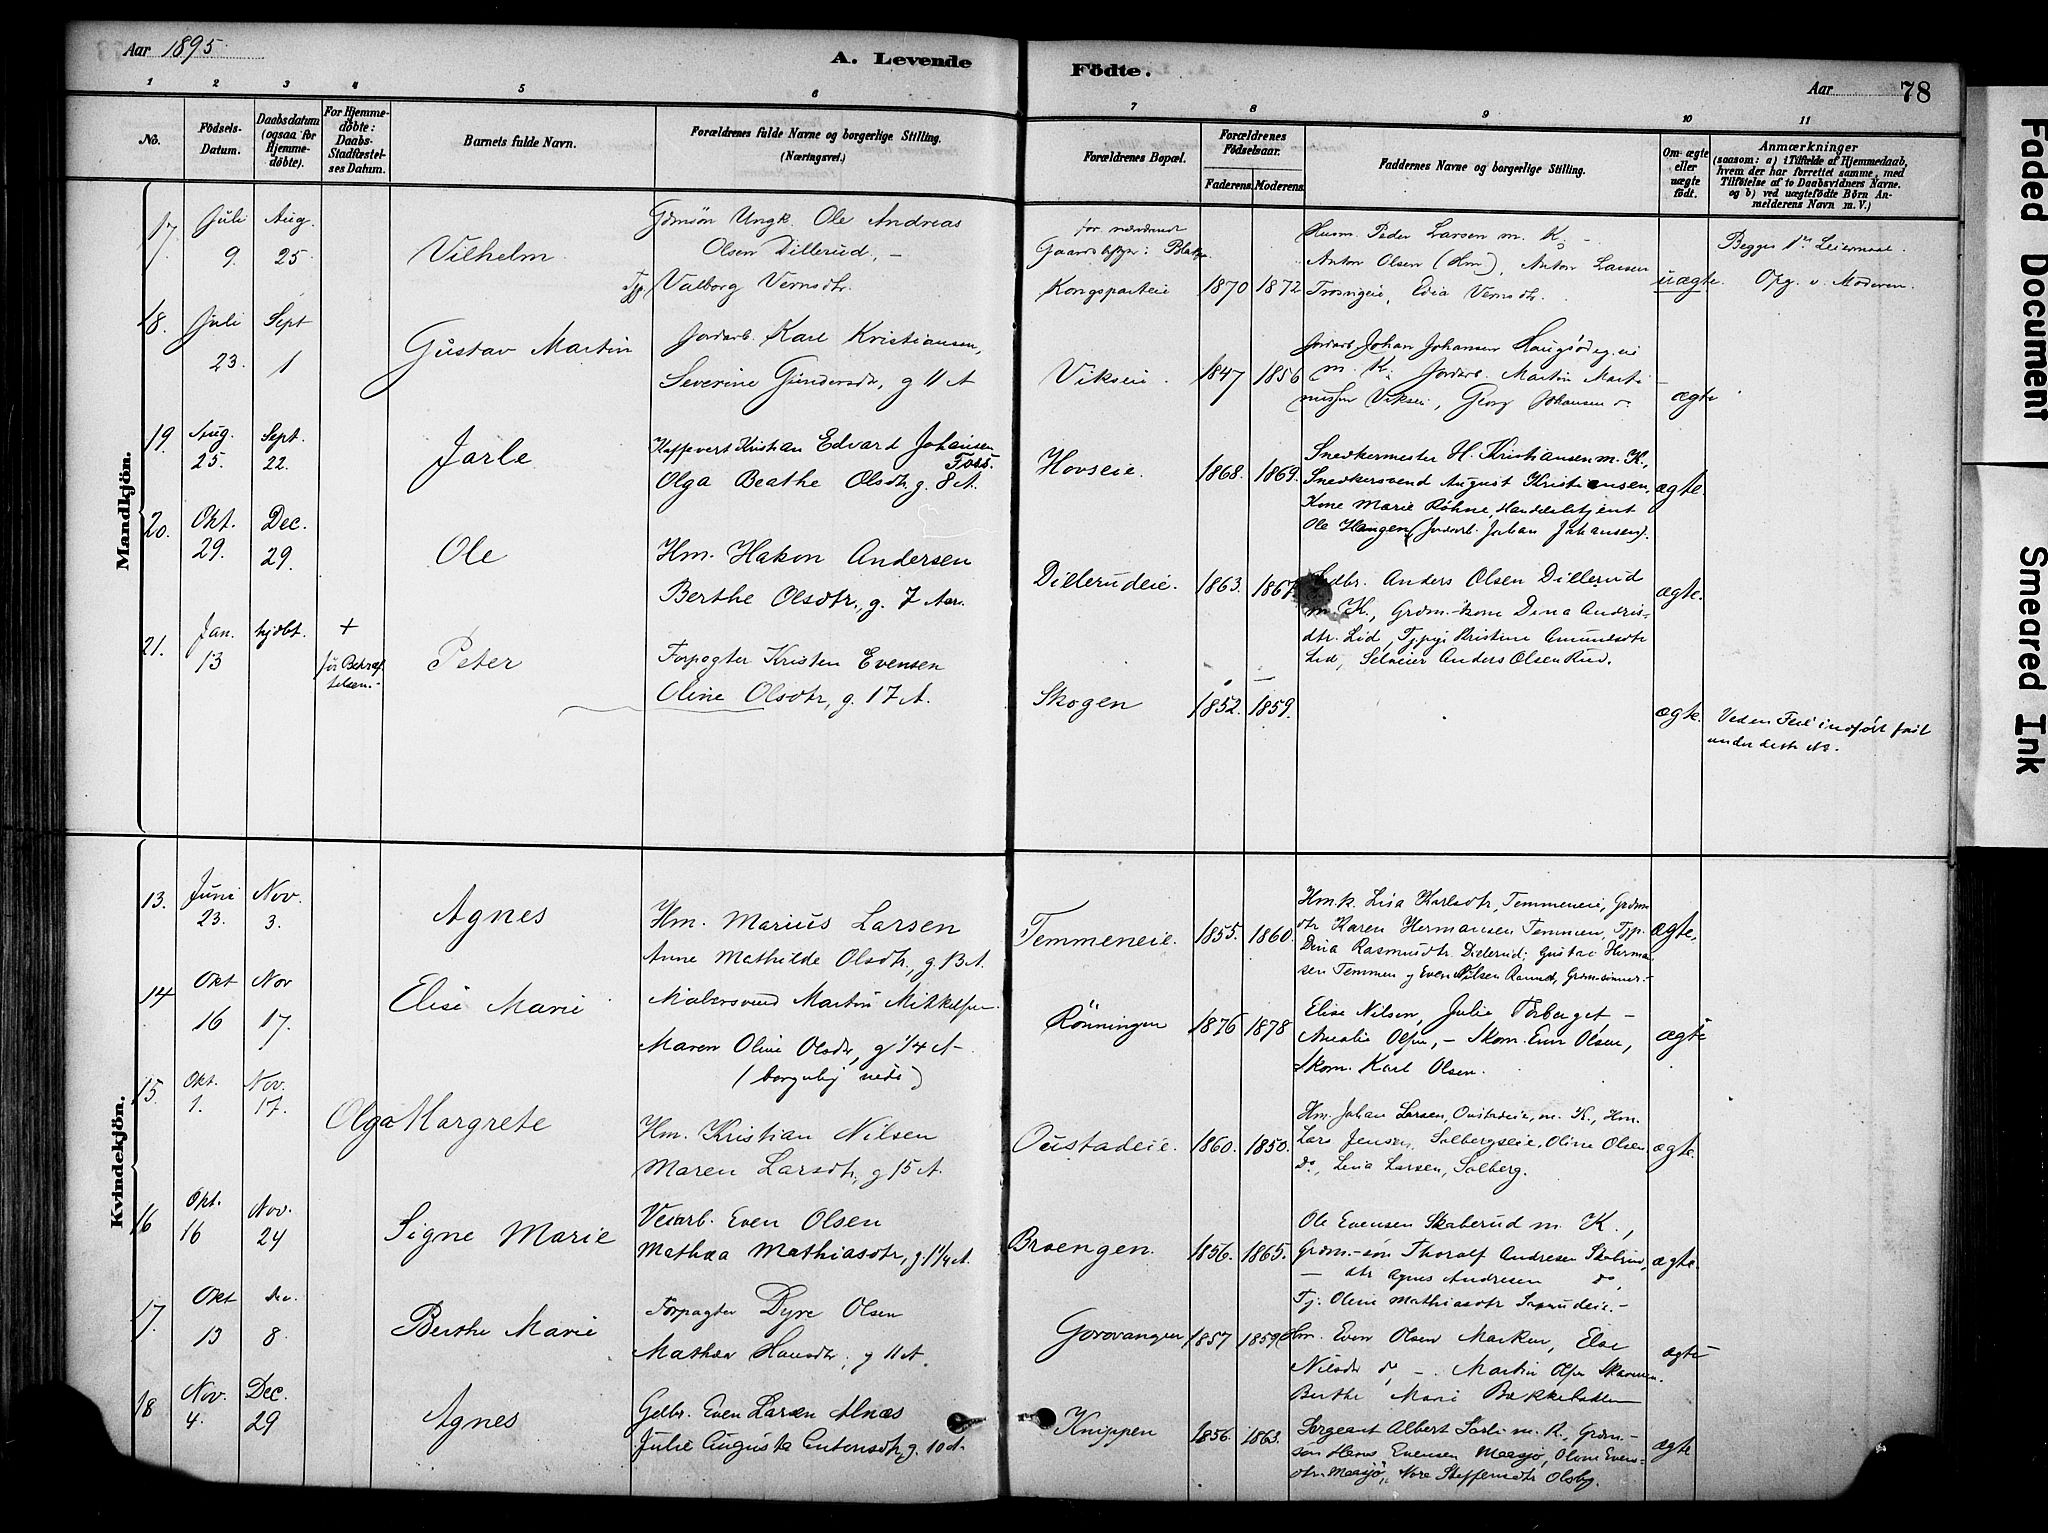 Aar 1895.
A. Levende
Födte.
Aar
78
1 2 3 4 5 6 7 8 9 10 11
No.
Födsels-
Datum.
Daabsdatum
(ogsaa for
Hjemme-
döbte).
For Hjemme-
döbte:
Daabs-
Stadfæstel-
ses Datum.
Barnets fulde Navn.
Forældrenes fulde Navne og borgerlige Stilling.
(Næringsvei.)
Forældrenes Bopæl.
Forældrenes
Födselsaar.
Faderens. Moderens.
Faddernes Navne og borgerlige Stilling.
Om ægte
eller
uægte
födt.
Anmærkninger
(saasom: a) i Tilfælde af Hjemmedaab,
hvem der har forrettet samme, med
Tilföielse af to Daabsvidners Navne.
og b) ved uægtefödte Börn An-
melderens Navn m. V.)
Mandkjön.
17 Juli 9. Aug. 25. Vilhelm
Gdmsøn Ungk. Ole Andreas
Olsen Dillerud, –
Valborg Vernsdtr.
for nærværende
Kongsparteie 1870 1872
Husm. Peder Larsen m. K;
Anton Olsen (Hm), Anton Larsen
uægte.
Begges 1ste Leiermaal.
Opg. v. Moderen.
18. Juli 23. Sept 1 Gustav Martin
Jordarb. Karl Kristiansen,
Severine Gundersdtr, g 11 A
Vikseie. 1847 1856
Jordarb Johan Johansen
m. K; Jordarb. Martin Marti
nussen Vikseie, Georg Johansen do
ægte
19 Aug. 25. Sept. 22. Jarle
Kristian Edvard Johansen
Foss.
Olga Beathe Olsdtr g. 8 A.
Hovseie. 1868. 1869.
Snedkermester H. Kristiansen m. K.,
Snedkersvend August Kristiansen,
Kone Marie Røhne, Handelsbetjent
Ole Haugen (Jordarb. Johan Johansen).
ægte.
20. Okt. 29. Dec. 29. Ole
Hm. Hakon Andersen
Berthe Olsdtr., g. 7 Aar.
Dillerudeie. 1863. 1867.
Anders Olsen Dillerud
m. K., Grdm.-kone Dina Andris-
dtr. Lid, Tjpige Kristine Amundsdtr
Lid, Selveier Anders Olsen Rud.
ægte.
21. Jan. 13 hjdbt. +
før Bekræf
telsen.-
Peter
Forpagter Kristen Evensen
Oline Olsdtr, g. 17 A.
Skogen 1852. 1859.
ægte.
Ved en Feil indført først
under dette No.
Kvindekjön.
13. Juni 23. Nov. 3. Agnes
Hm. Marius Larsen
Anne Mathilde Olsdtr., g. 13 A.
Temmeneie. 1855. 1860.
Hmk. Lisa Karlsdtr, Temmeneie, Grdm
dtr Karen Hermansen Temmen, Tjp.
Dina Rasmusdtr Dillerud; Gustav Herman
sen Temmen og Even Nilsen Grdm.sønner.-
ægte.
14 Okt 16 Nov 17. Elise Marie
Malersvend Martin Mikkelsen
Maren Oline Olsdtr, g 1/4 A-
(borgerlig viede)
Rönningen 1876 1878
Elise Nilsen, Julie Torberget –
Amalie Olsen, – Skom. Even Olsen,
Skom. Karl Olsen.
ægte
15. Okt. 1. Nov. 17. Olga Margrete
Hm. Kristian Nilsen
Maren Larsdtr, g 15 A.
Oustadeie. 1860. 1850.
Hm. Johan Larsen, m. K., Hm.
Lars Jensen, Solbergseie, Oline Olsen
do, Lina Larsen, Solberg.
ægte.
16 Okt. 16 Nov. 24 Signe Marie
Veiarb. Even Olsen
Mathea Mathiasdtr, g. 1 1/4 A.
Braengen. 1856. 1865.
Ole Evensen Skaberud m. K.,
Grdm.-søn Thoralf Andresen Skaberud,
— dtr Agnes Andresen do,
Tj. Oline Mathiasdtr
ægte.
17. Okt 13 Dec. 8. Berthe Marie
Forpagter Dyre Olsen
Mathea Hansdtr, g 11 A.
Gorovangen 1857 1859
Hm. Even Olsen Marken, Else
Nilsdtr do, –. Martin Olsen
Berthe Marie
ægte
18 Nov. 4. Dec. 29 Agnes
Gdbr. Even Larsen Alnæs
Julie Augusta Antonsdtr, g. 10 A-
Knippen 1856. 1863.
Sergeant Albert m. K., Grdm.-
søn Hans Evensen Mæsjø, Oline Evens-
dtr. Mæsjø, Nore Steffensdtr Olsby.
ægte
Faded Document
Smeared Ink